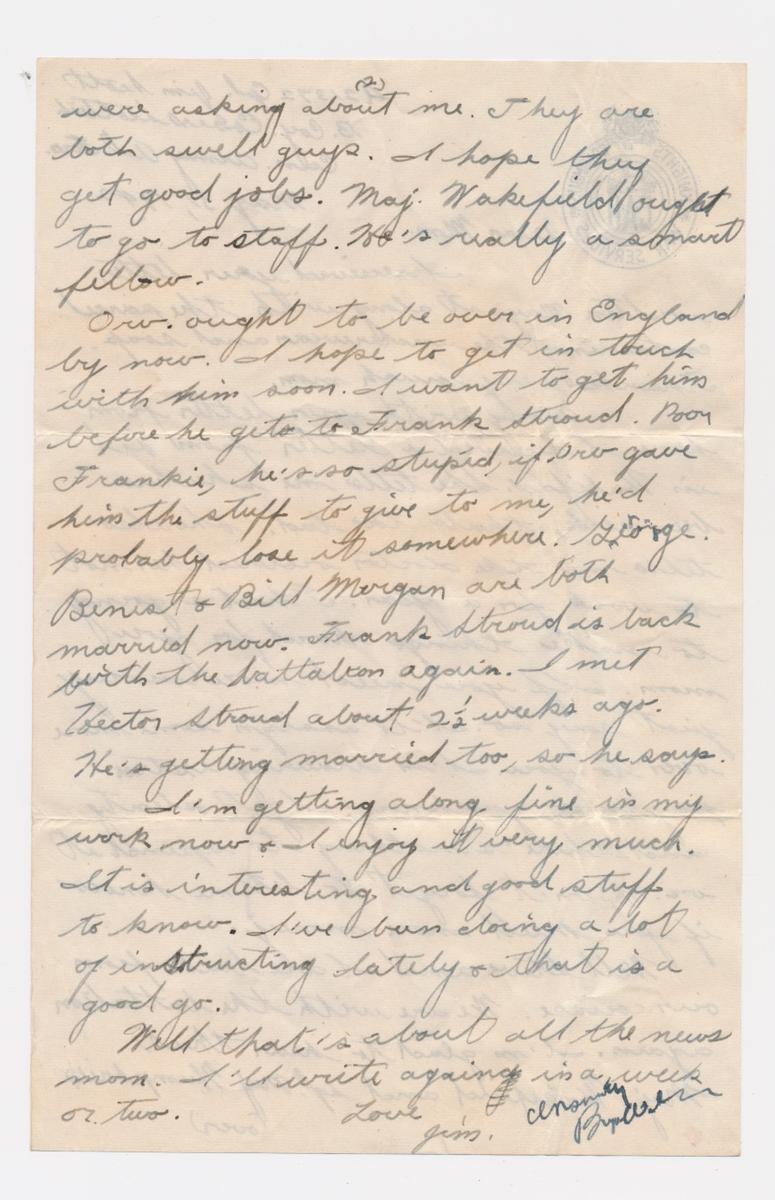 (2)
were asking about me. They are
both swell guys. I hope they
get good jobs. Maj. Wakefield ought
to go to staff. He's really a smart
fellow.
Orv. ought to be over in England
by now. I hope to get in touch
with him soon. I want to get him
before he gets to Frank Stroud. Poor
Frankie, he's so stupid, if Orv gave
him the stuff to give to me, he'd
probably lose it somewhere. George.
Benest & Bill Morgan are both
married now. Frank Stroud is back
with the battalion again. I met
Hector Stroud about 2½ weeks ago.
He's getting married too, so he says.
I'm getting along fine in my
work now & I enjoy it very much.
It is interesting and good stuff
to know. I've been doing a lot
of instructing lately & that is a
good go.
Well that's about all the news
mom. I'll write again in a week
or two. Love
Jim.